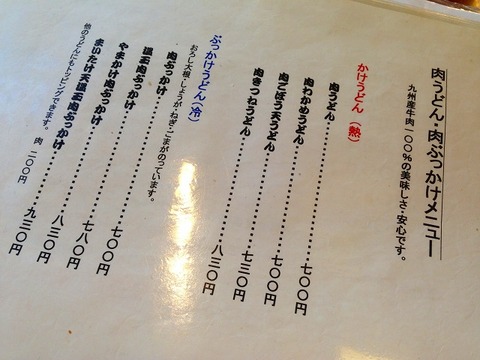 肉うどん・肉ぶっかけメニュー
九州産牛肉一〇〇%の美味しさ・安心です。
かけうどん(熱)
肉うどん……………七〇〇円
肉わかめうどん……………七〇〇円
肉ごぼう天うどん……………七三〇円
肉きつねうどん……………八三〇円
ぶっかけうどん(冷)
おろし大根・しょうが・ねぎ・ごまがのっています。
肉ぶっかけ……………七〇〇円
温玉肉ぶっかけ……………七八〇円
やまかけ肉ぶっかけ……………八三〇円
まいたけ天温玉肉ぶっかけ……………九三〇円
他のうどんにもトッピングできます。 肉 二〇〇円